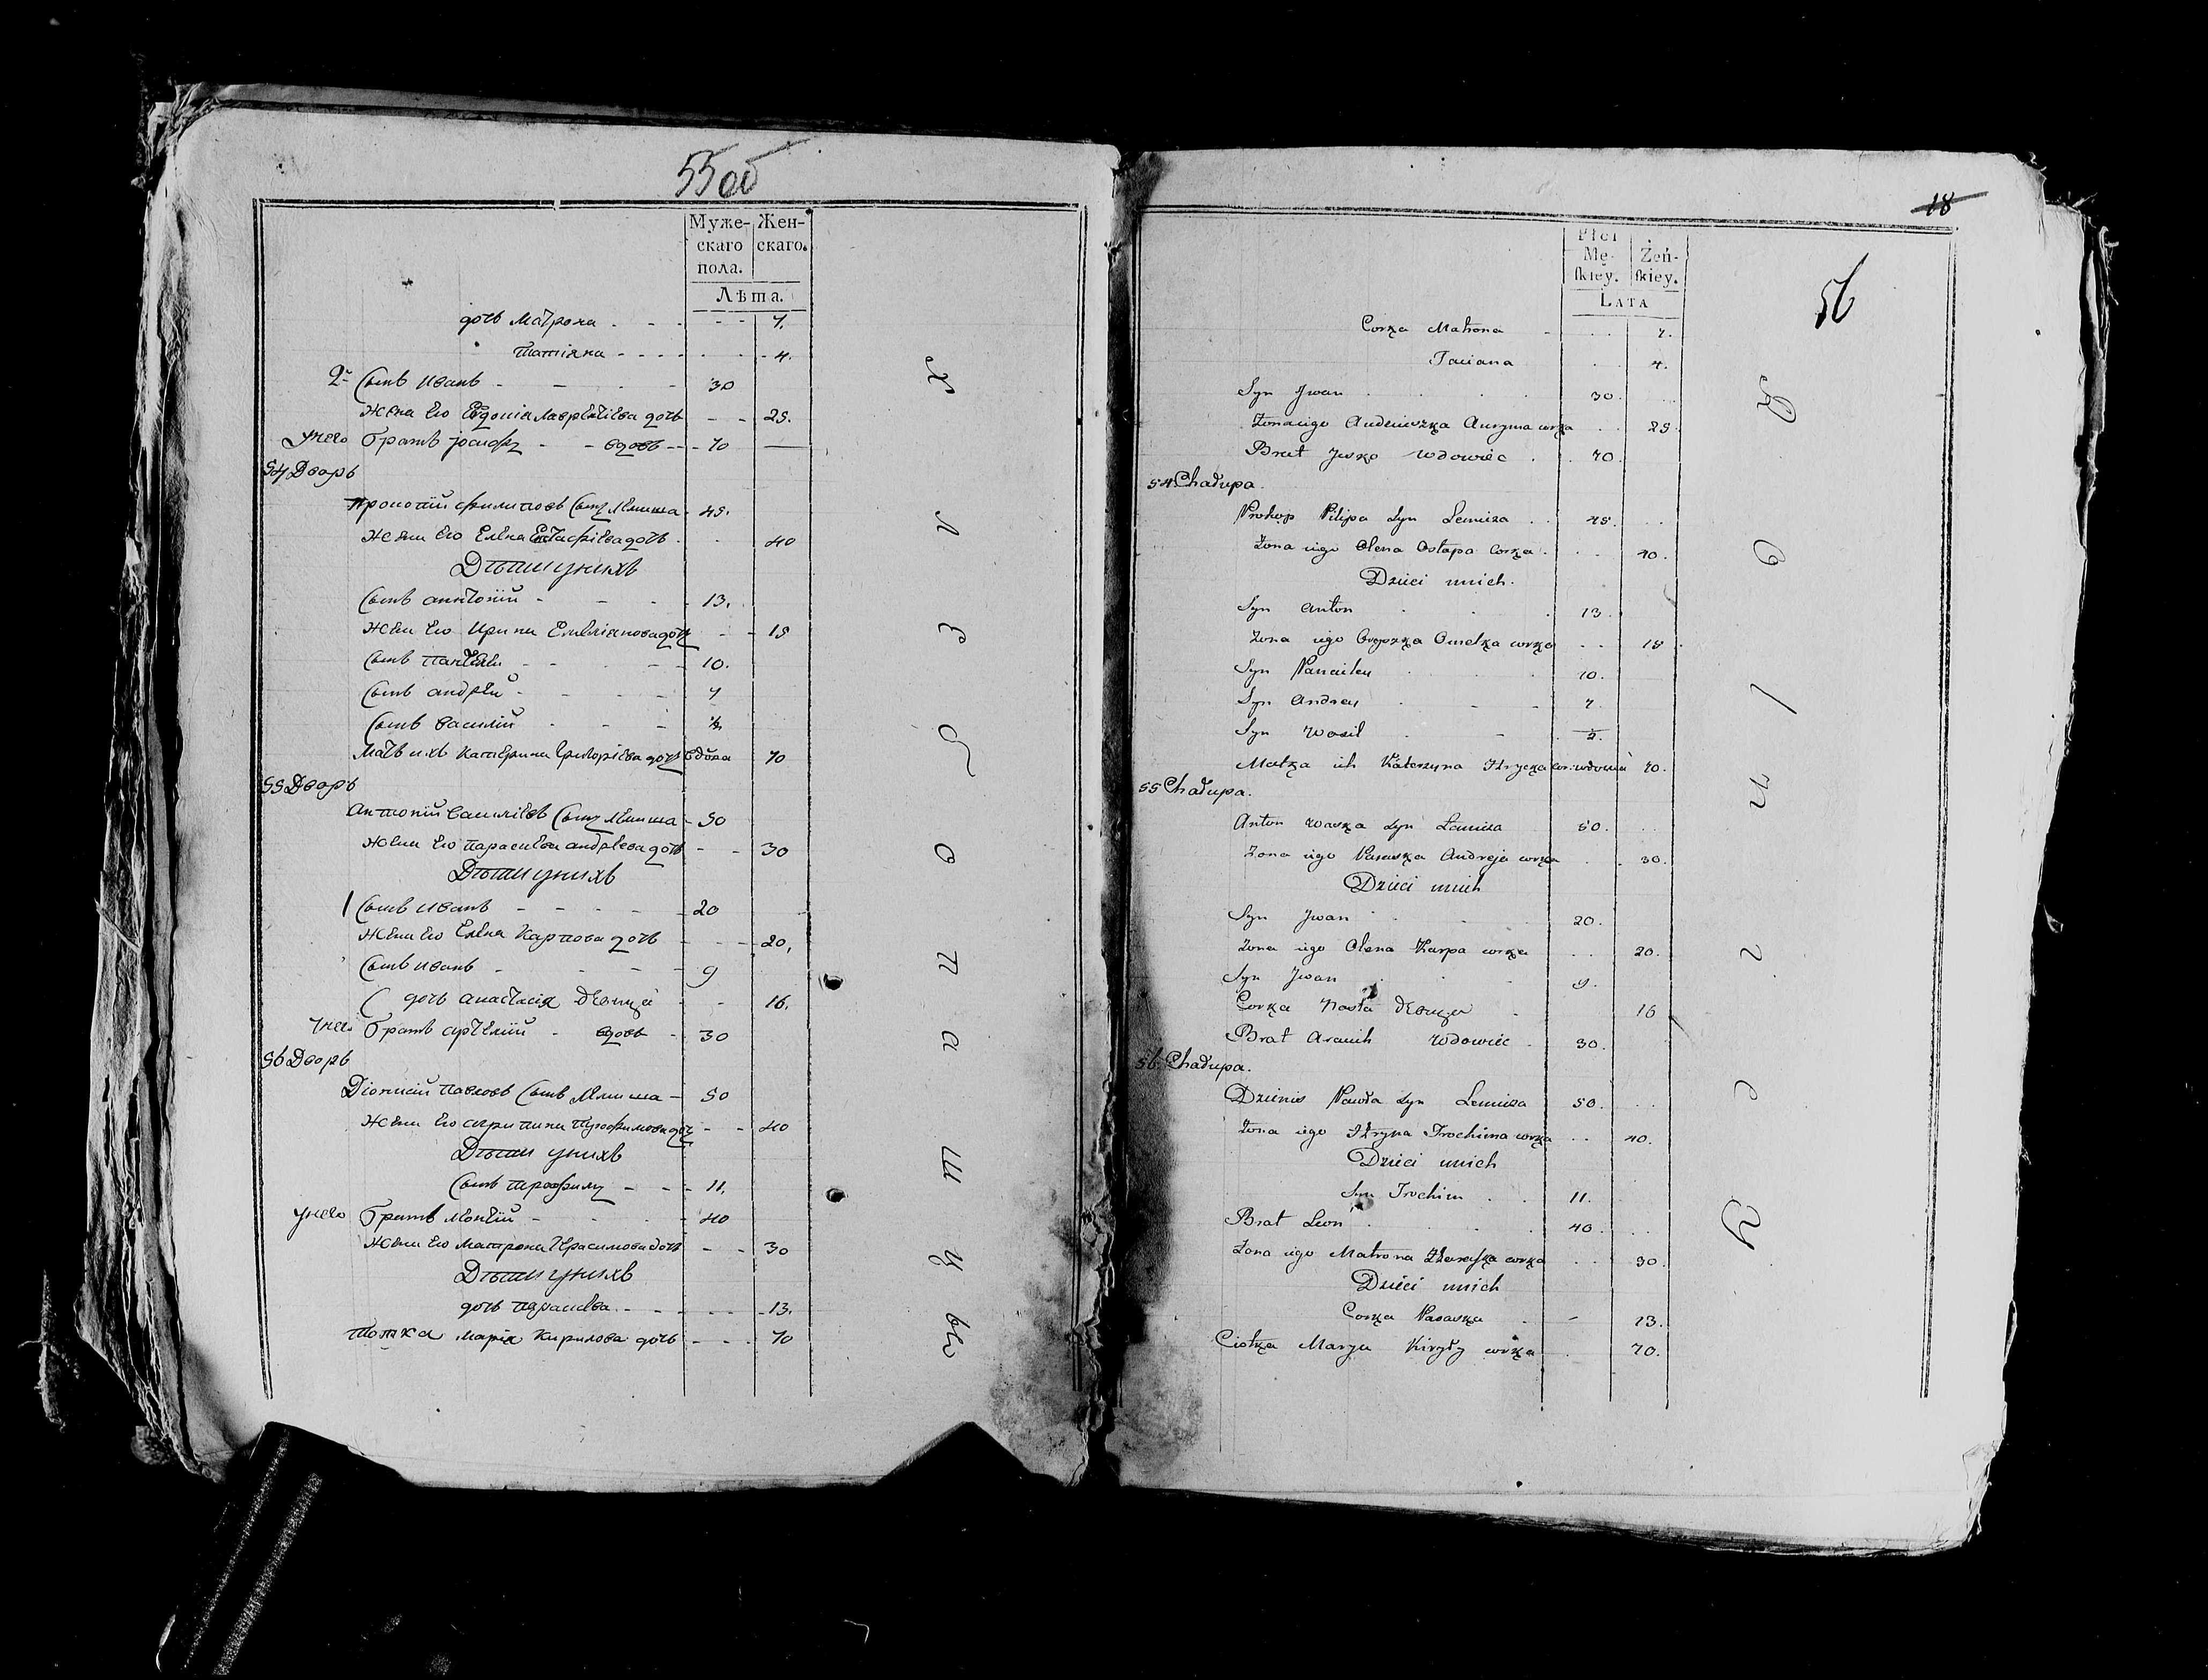 55об
Муже-
скаго
пола.
Жен-
скаго.
Лѣта.
дочь Матрона - - - 7.
татіяна - - - 4.
2й Сынъ иванъ - - - 30
жена Его Евдокія лаврентіева дочь - - 25.
Унего братъ іосифъ - вдовъ - 70
54 Дворъ
прокопій филиповъ Сынъ Лемиша 45.
жена Его Елена Естафіева дочь 40
Дѣти унихъ
Сынъ антоній - - 13.
жена Его Ирина Емеліанова дочь - 15
Сынъ пантелей - - 10.
Сынъ андрей - - 7
Сынъ василій - -
Мать ихъ катерина григоріева дочь вдова 70
55 Дворъ
антоній василіевъ Сынъ Лемиша - 50
жена Его параскева андреева дочь - - 30
Дѣти унихъ
1 Сынъ иванъ - - - 20
жена Его Елена карпова дочь - - 20.
Сынъ иванъ - - - 9
дочь анастасія девица - 16.
Унего братъ артемій - вдовъ - 30
56 Дворъ
Діонисій павловъ Сынъ Лемиша - 50
жена Его агрипина трофимова дочь - - 40
Дѣти унихъ
Сынъ трофимъ - - 11.
Унего братъ леонтій - 40
жена Его матрона герасимова дочь - - 30
Дѣти унихъ
дочь параскева - - - 13.
тотка марія кирилова дочь - - 70
х
л
е
б
о
п
а
ш
ц
ы
18
56
Płci
Mę-
skiey.
Żeń-
skiey.
LATA
Corka Matrona - 7.
Taciana 4.
Syn Jwan 30.
Żona iego Audeiuszka Auryma corka 25
Brat Jusko wdowiec 70.
54 Chałupa.
Prokop Pilipa syn Lemisza 45.
Żona iego Olena Ostapa corka 40.
Dzieci unich.
Syn Anton 13.
Żona iego Orynka Omelka corka 15
Syn Panciley 10.
Syn Andrey - - 7.
Syn Wasil -
Matka ich Katerzyna Hrycka cor: wdowa 70.
55 Chałupa.
Anton Waska syn Lemisza 50.
Żona iego Paraska Andreja corka 30.
Dzieci unich
Syn Jwan 20.
Żona iego Olena Karpa corka 20.
Syn Jwan 9.
Corka Nasta девица 16
Brat wdowiec 30.
56 Chałupa.
Dzienis Pawła syn Lemisza 50.
Żona iego Hrypa Trochima corka 40.
Dzieci unich
Syn Trochim 11.
Brat Leon 40.
Żona iego Matrona Haraska corka 30.
Dzieci unich
Corka Paraska - 13.
Ciotka Marya Kiryły corka 70.